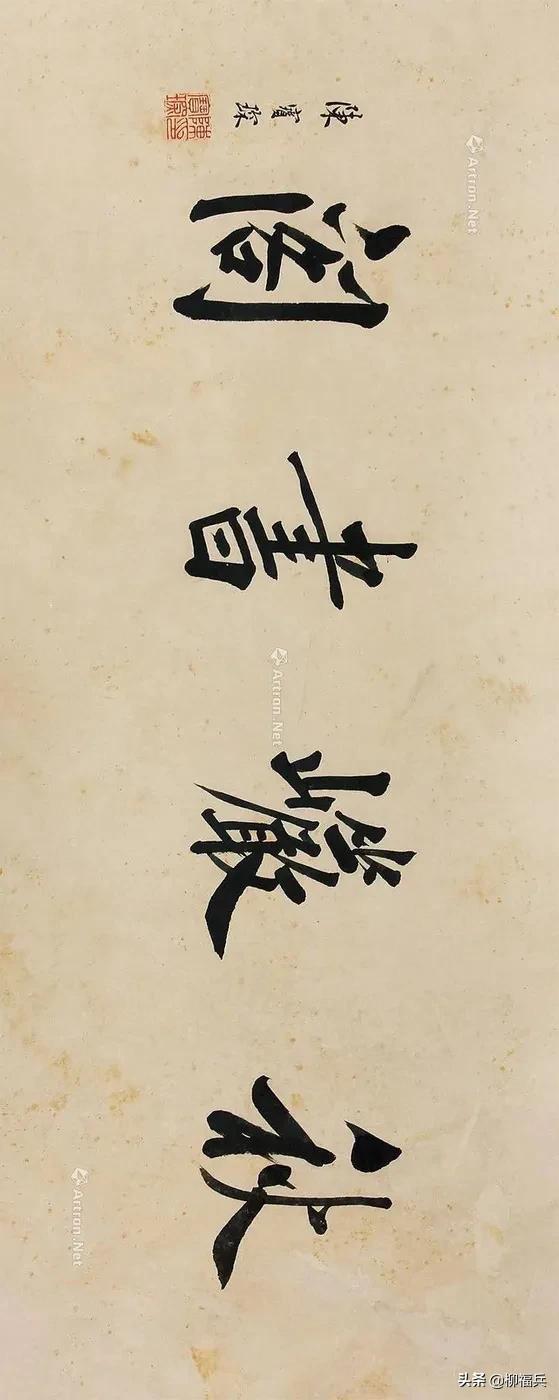 巖書閣
陳寶琛
Artron.Net
Artron.Net
Artron.Net
头条 @柳福兵